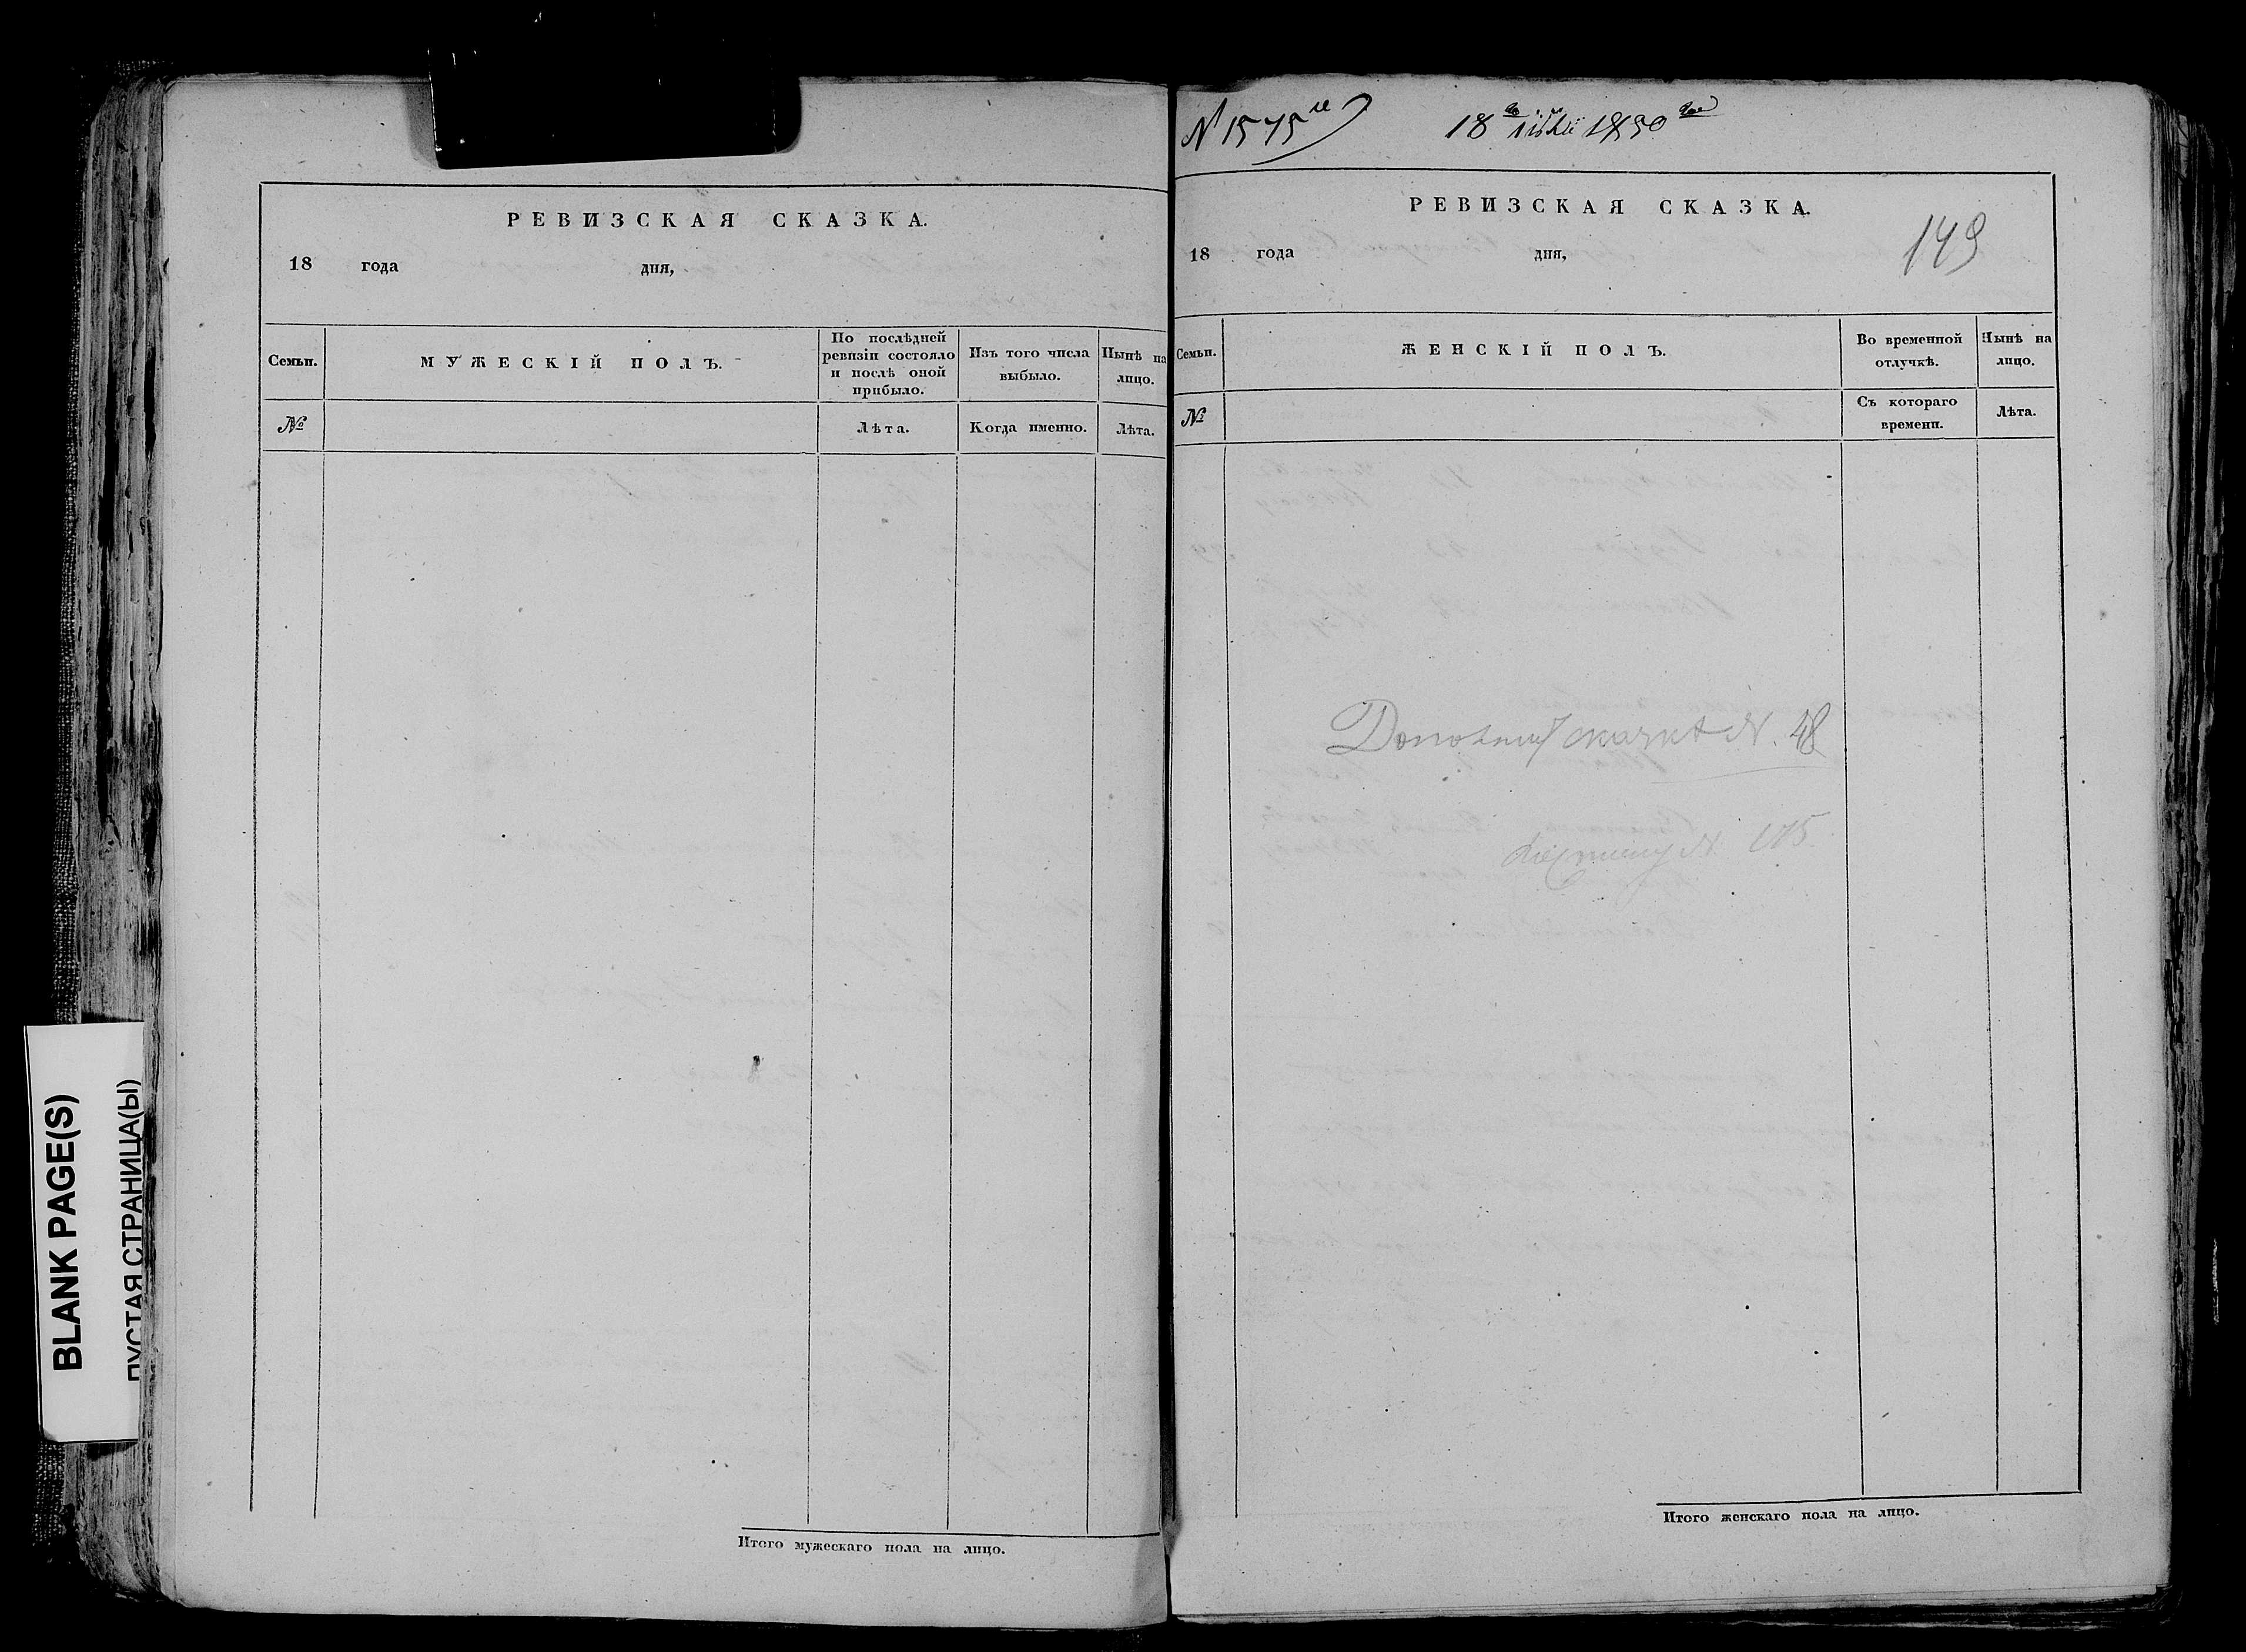 РЕВИЗСКАЯ СКАЗКА.
18 года дня,
Семьи. МУЖЕСКІЙ ПОЛЪ. По послѣдней ревизіи состояло и послѣ оной прибыло. Изъ того числа выбыло. Нынѣ на лицо.
№ Лѣта. Когда именно. Лѣта.
Итого мужескаго пола на лицо.
N 1575
18 1850
РЕВИЗСКАЯ СКАЗКА.
149
18 года дня,
Семьи. ЖЕНСКІЙ ПОЛЪ. Во временной отлучкѣ. Нынѣ на лицо.
№ Съ котораго времени. Лѣта.
сказка N. 48
N 175
Итого женскаго пола на лицо.
BLANK PAGE(S)
ПУСТАЯ СТРАНИЦА(Ы)